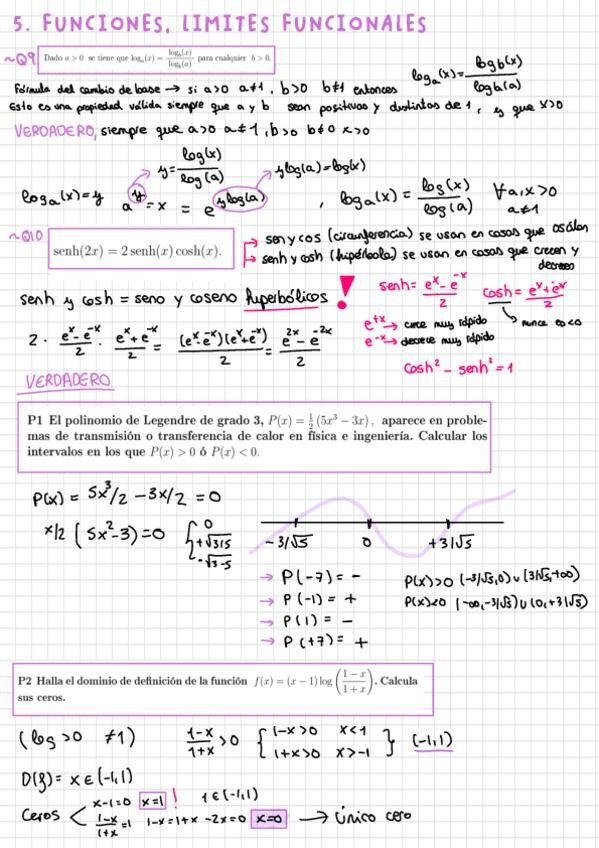 5. FUNCIONES, LIMITES FUNCIONALES
~Q9 Dado a > 0 se tiene que logₐ(x) = log_b(x)/log_b(a) para cualquier b > 0.
Fórmula del cambio de base → si a>0 a≠1, b>0 b≠1 entonces logₐ(x) = log_b(x)/log_b(a)
Esto es una propiedad válida siempre que a y b sean positivos y distintos de 1, y que x>0
VERDADERO, siempre que a>0 a≠1, b>0 b≠0 x>0
y = log(x)/log(a) y log(a) = log(x)
logₐ(x) = y a^y = x = e^(y log(a)), logₐ(x) = log(x)/log(a) ∀a,x>0 a≠1
~Q10 senh(2x) = 2 senh(x) cosh(x).
sen y cos (circunferencia) se usan en casos que oscilan
senh y cosh (hipérbola) se usan en casos que crecen y decrecen
senh y cosh = seno y coseno hiperbólicos !
senh = (e^x - e^-x)/2 cosh = (e^x + e^-x)/2
2 · (e^x - e^-x)/2 · (e^x + e^-x)/2 = (e^x - e^-x)(e^x + e^-x)/2 = (e^2x - e^-2x)/2
e^+x → crece muy rápido
e^-x → decrece muy rápido
nunca es <0
cosh² - senh² = 1
VERDADERO
P1 El polinomio de Legendre de grado 3, P(x) = ½ (5x³ − 3x), aparece en proble-
mas de transmisión o transferencia de calor en física e ingeniería. Calcular los
intervalos en los que P(x) > 0 ó P(x) < 0.
P(x) = 5x³/2 - 3x/2 = 0
x/2 (5x²-3) = 0 { 0 +√3/5 -√3/5
-3/√5 0 +3/√5
→ P(-7) = -
→ P(-1) = +
→ P(1) = -
→ P(+7) = +
P(x)>0 (-3/√5,0) ∪ (3/√5,+∞)
P(x)<0 (-∞,-3/√5) ∪ (0,+3/√5)
P2 Halla el dominio de definición de la función f(x) = (x − 1) log ((1 − x)/(1 + x)). Calcula
sus ceros.
(log >0 ≠1) (1-x)/(1+x) > 0 { 1-x>0 x<1
1+x>0 x>-1 } (-1,1)
D(f) = x ∈ (-1,1)
Ceros < x-1=0 x=1 ! 1 ∈ (-1,1)
(1-x)/(1+x) = 1 1-x = 1+x -2x=0 x=0 → único cero